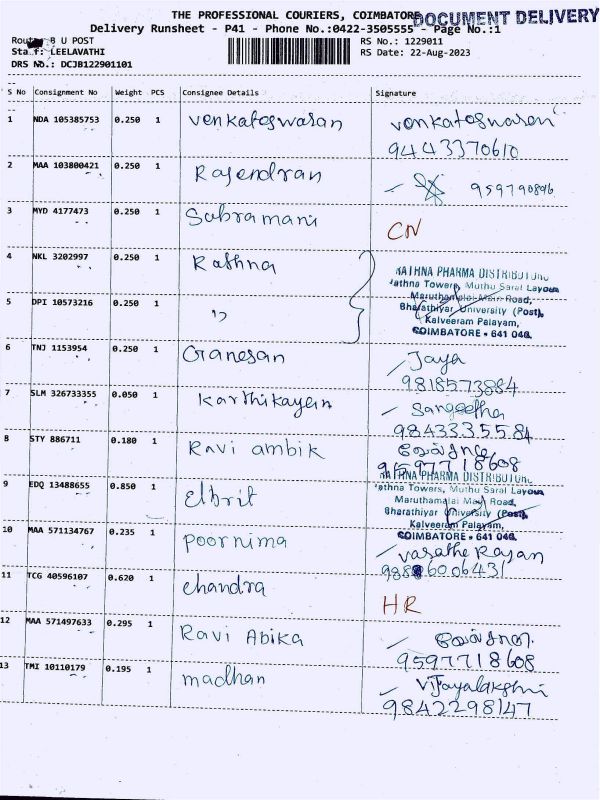 THE PROFESSIONAL COURIERS, COIMBATORE
DOCUMENT DELIVERY
Delivery Runsheet - P41 - Phone No.:0422-3505555 - Page No.:1
B U POST
RS No.: 1229011
LEELAVATHI
RS Date: 22-Aug-2023
DRS No.: DCJB122901101
S No Consignment No Weight PCS Consignee Details Signature
1 NDA 105385753 0.250 1 Venkateswaran Venkateswaran
9443370610
2 MAA 103800421 0.250 1 Rajendran 959790896
3 MYD 4177473 0.250 1 Subramani CN
4 NKL 3202997 0.250 1 Rathna
RATHNA PHARMA DISTRIBUTORS
Rathna Towers, Muthu Saral Layout
Maruthamalai Main Road,
5 DPI 10573216 0.250 1 " Bharathiyar University (Post),
Kalveeram Palayam,
COIMBATORE - 641 046.
6 TNJ 1153954 0.250 1 Ganesan Jaya
9818573884
7 SLM 326733355 0.050 1 Karthikayen Sangeetha
9843335584
8 STY 886711 0.180 1 Ravi ambik
9597718608
RATHNA PHARMA DISTRIBUTORS
9 EDQ 13488655 0.850 1 Elbrit Rathna Towers, Muthu Saral Layout
Maruthamalai Main Road,
Bharathiyar University (Post),
Kalveeram Palayam,
COIMBATORE - 641 046.
10 MAA 571134767 0.235 1 Poornima Vasathe Rajan
11 TCG 40596107 0.620 1 chandra HR
12 MAA 571497633 0.295 1 Ravi Abika
9597718608
13 TMI 10110179 0.195 1 madhan Vijayalakshmi
9842298147